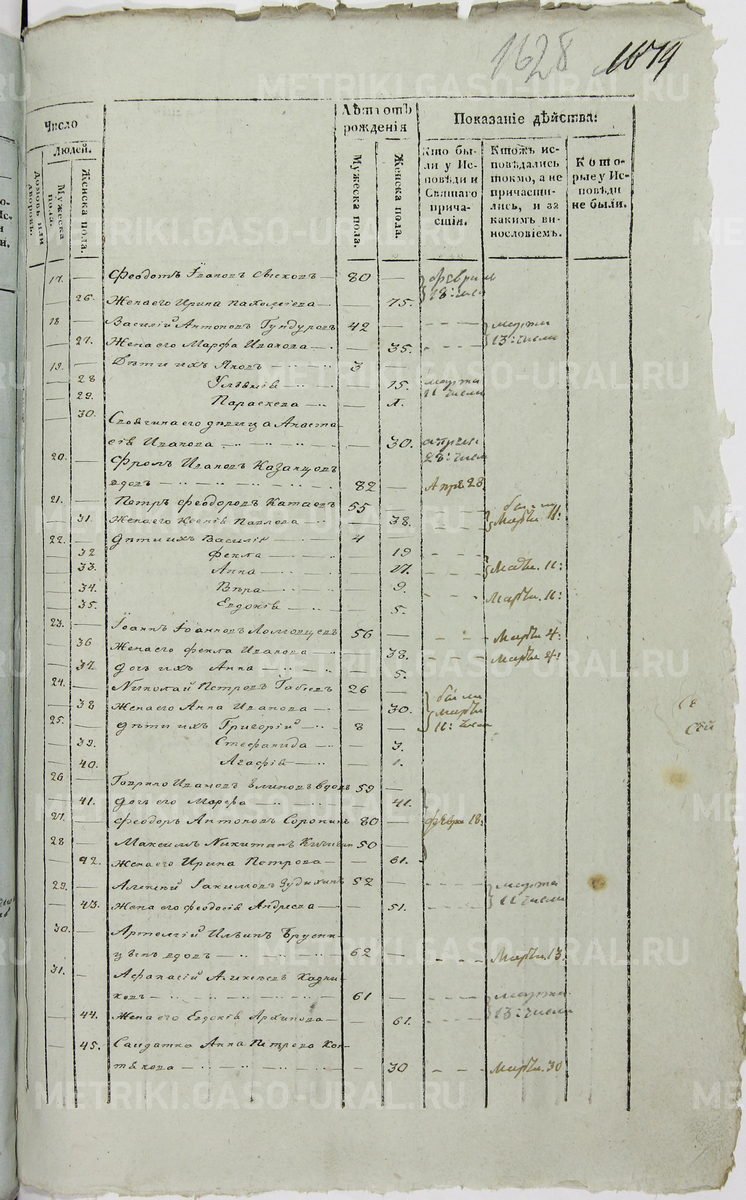 1628 1679
Число
Людей.
Домовъ или дворовъ.
Мужеска пола.
Женска пола.
Лѣтъ отъ рожденія
Мужеска пола.
Женска пола.
Показаніе дѣйства:
Кто бы-
ли у Ис-
повѣди и
Святаго
прича-
стія.
Ктожъ ис-
повѣдались
токмо, а не
причасти-
лись, и за
какимъ ви-
нословіемъ.
Кото-
рые у Ис-
повѣди
не были.
17. Феодотъ Іванов 80 февраля
26. Жена его Ирина Пахоміева 75. 18: числа
18. Василій Антоновъ Гундуровъ 42 марта
27. Жена его Марфа Иванова 35. 13: числа
19. Дѣти ихъ Яковъ 3
28 Уліанія 15. марта
29. Параскева 11 числа
30. его дѣвица Анаста-
сія Иванова 30. апреля 28: числа
20. Фролъ Ивановъ Казанцовъ
вдовъ 82 Апрѣ 28
21. Петръ Феодоровъ Катаевъ 55 были
31. Жена его Ксенія Павлова 38. Марта 11:
22. Дѣти ихъ Василій 4
32 Фекла 19
33. Анна 17. 11:
34. Вѣра 9. Марта. 11:
35. Евдокія 5.
23. Іоаннъ Іоанновъ 56 Марта 4:
36 Жена его Фекла Иванова 38. Марта 4:
37 дочь ихъ Анна 5.
24. Николай Петровъ 26 были
38 Жена его Анна Иванова 30. марта
25. дѣти ихъ Григорій 8 11: числа
39. Стефанида 3.
40. Агафія 1.
26 Гаврило Ивановъ Блиновъ вдовъ 59
41. дочь его Марфа 41.
27. Феодоръ Антоновъ Сорокинъ 80 февра 18:
28 Максимъ Никитинъ 50
42. Жена его Ирина Петрова 61.
29. Алексій Іакимовъ Зудихинъ 52 марта
43. Жена его Феодосія Андреева 51. 11 числа
30. Артемій Ильинъ Брусни-
цынъ вдовъ 62 Марта. 13.
31. Афанасій Алексѣевъ Кадни-
ковъ 61 марта
44. Жена его Евдокія Архипова 61. 13: числа
45. Салдатка Анна Петрова Кот-
ѣкова 30 Марта. 30
METRIKI.GASO-URAL.RU